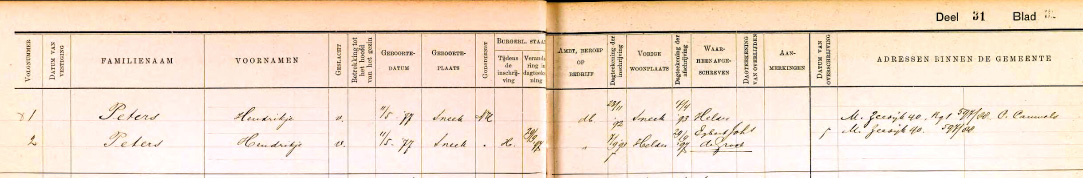 Deel 31 Blad
VOLGNUMMER
DATUM VAN VESTIGING
FAMILIENAAM
VOORNAMEN
GESLACHT
Betrekking tot het hoofd van het gezin
GEBOORTE-DATUM
GEBOORTE-PLAATS
GODSDIENST
BURGERL. STAAT
Tijdens de inschrijving
Verandering in dagteekening
AMBT, BEROEP OF BEDRIJF
Dagteekening der inschrijving
VORIGE WOONPLAATS
Dagteekening der afschrijving
WAARHEEN AFGESCHREVEN
DAGTEEKENING VAN OVERLIJDEN
AANMERKINGEN
DATUM VAN OVERSCHRIJVING
ADRESSEN BINNEN DE GEMEENTE
1 Peters Hendrikje v. 11/5 77 Sneek NH db 92 Sneek 93 Helder M. Zeedijk 40,
2 Peters Hendrikje v. 11/5 77 Sneek " H. " Helder 97 Egbert Joh's 5 M. Zeedijk 40.
de Groot